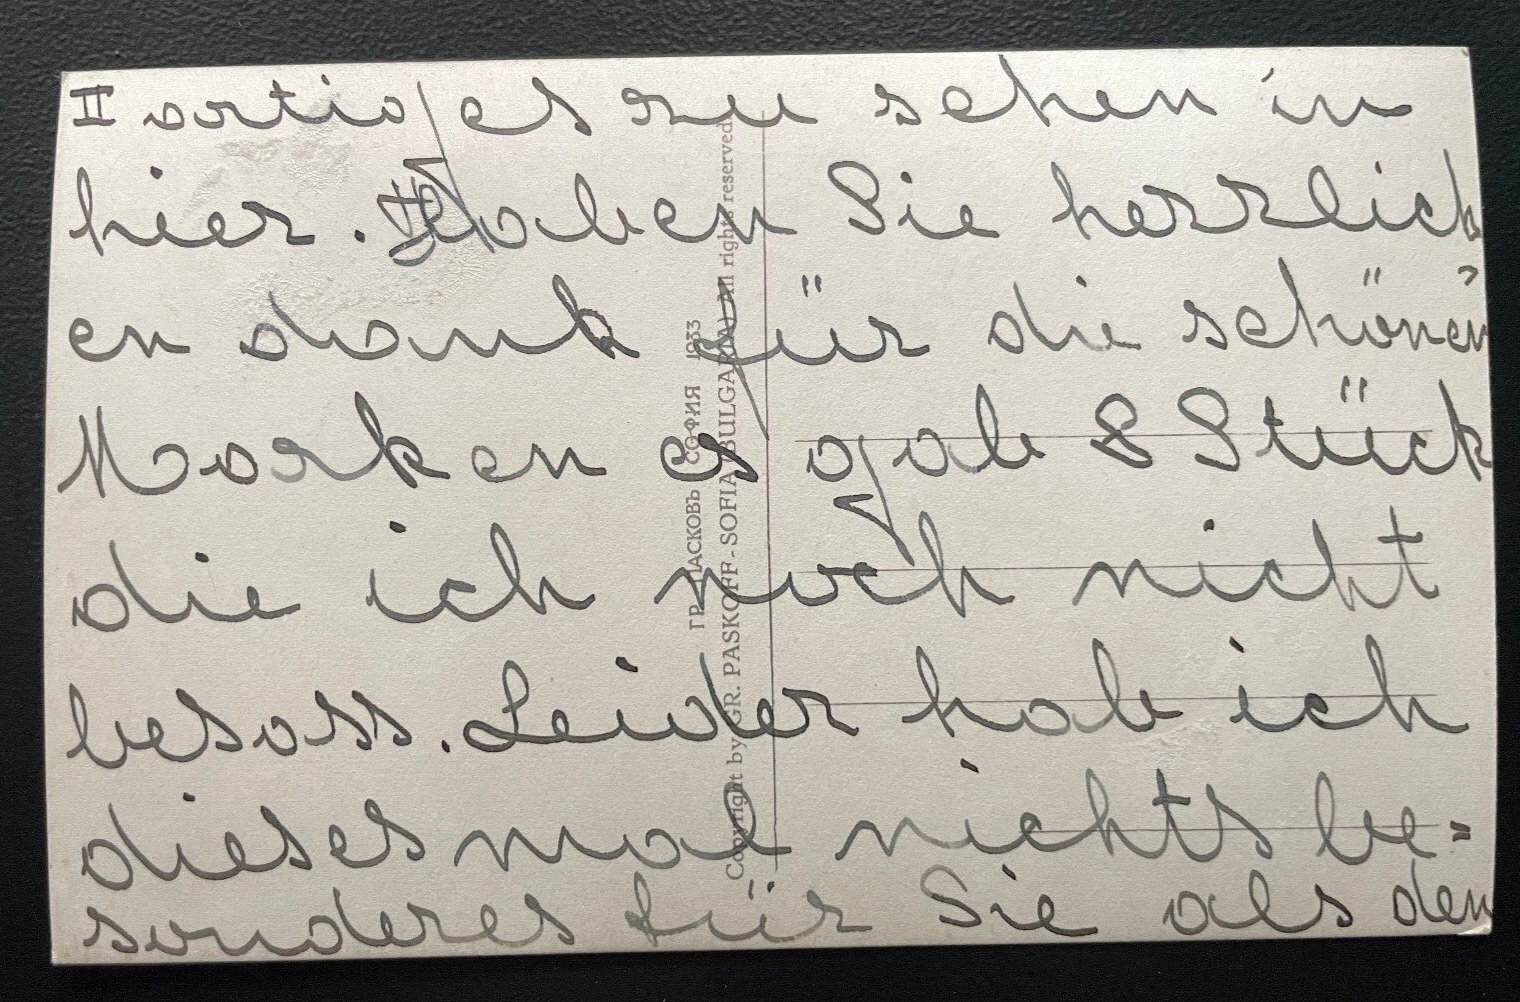 II artig es zu sehen in
hier. Haben Sie herrlich
en dank für die schönen
Marken es gab 8 Stück
die ich noch nicht
besass. Leider hab ich
dieses mal nichts be=
sonderes für Sie als den
ГР. ПАСКОВЪ СОФИЯ 1933
Copyright by GR. PASKOFF - SOFIA (BULGARIA) All rights reserved